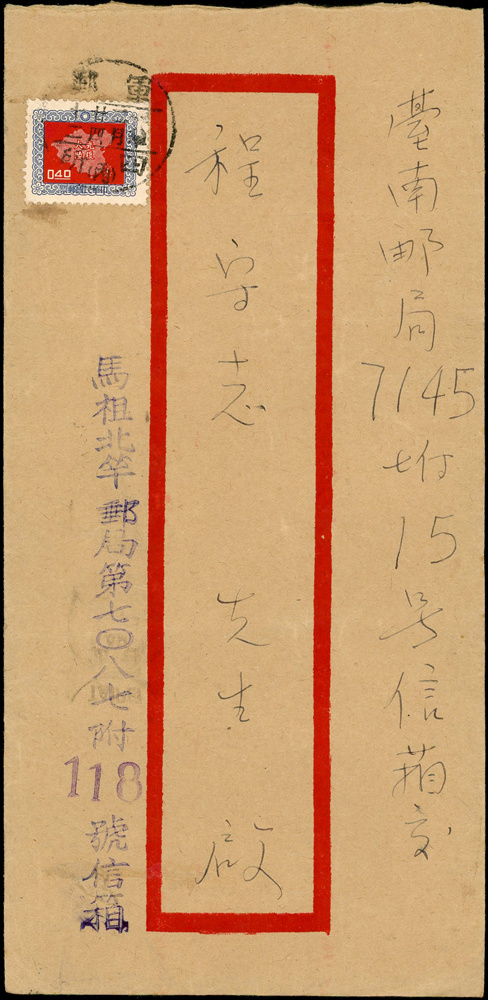 臺南郵局7145附15号信箱交
程守志先生啟
馬祖北竿郵局第七〇八七附118號信箱
軍郵
040